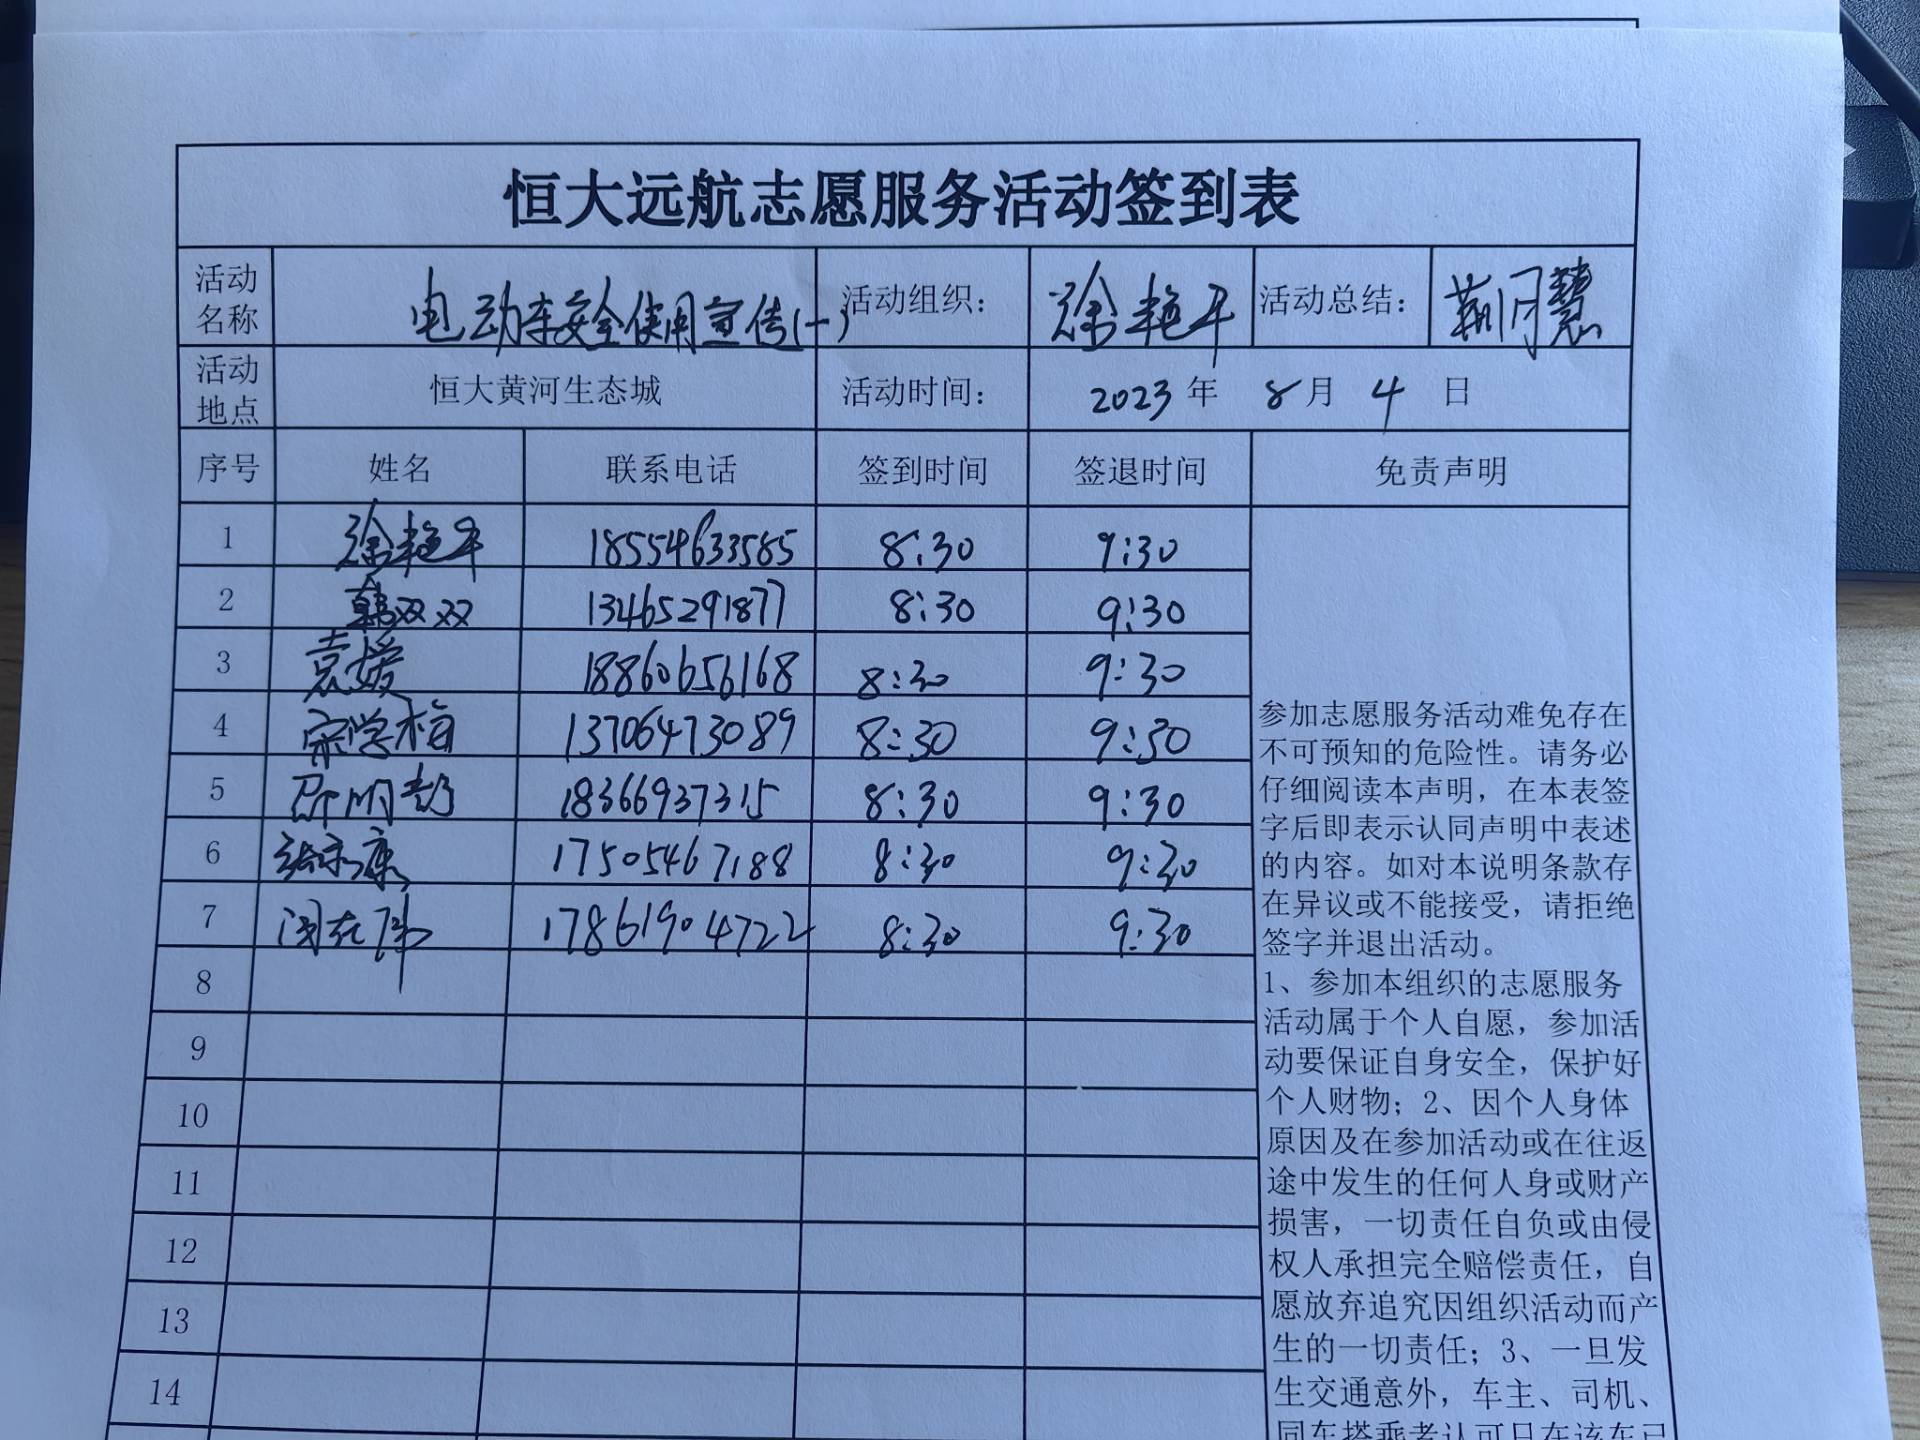 恒大远航志愿服务活动签到表
活动名称 电动车安全使用宣传(一) 活动组织： 徐艳平 活动总结： 荆月慧
活动地点 恒大黄河生态城 活动时间： 2023 年 8 月 4 日
序号 姓名 联系电话 签到时间 签退时间 免责声明
1 徐艳平 18554633585 8:30 9:30
2 韩双双 13465291877 8:30 9:30
3 袁媛 18860656168 8:30 9:30
4 宋学梅 13706473089 8:30 9:30
5 邵明彭 18366937315 8:30 9:30
6 张永康 17505467188 8:30 9:30
7 17861904722 8:30 9:30
8
9
10
11
12
13
14
参加志愿服务活动难免存在
不可预知的危险性。请务必
仔细阅读本声明，在本表签
字后即表示认同声明中表述
的内容。如对本说明条款存
在异议或不能接受，请拒绝
签字并退出活动。
1、参加本组织的志愿服务
活动属于个人自愿，参加活
动要保证自身安全，保护好
个人财物；2、因个人身体
原因及在参加活动或在往返
途中发生的任何人身或财产
损害，一切责任自负或由侵
权人承担完全赔偿责任，自
愿放弃追究因组织活动而产
生的一切责任；3、一旦发
生交通意外，车主、司机、
同车搭乘者认可只在该车已